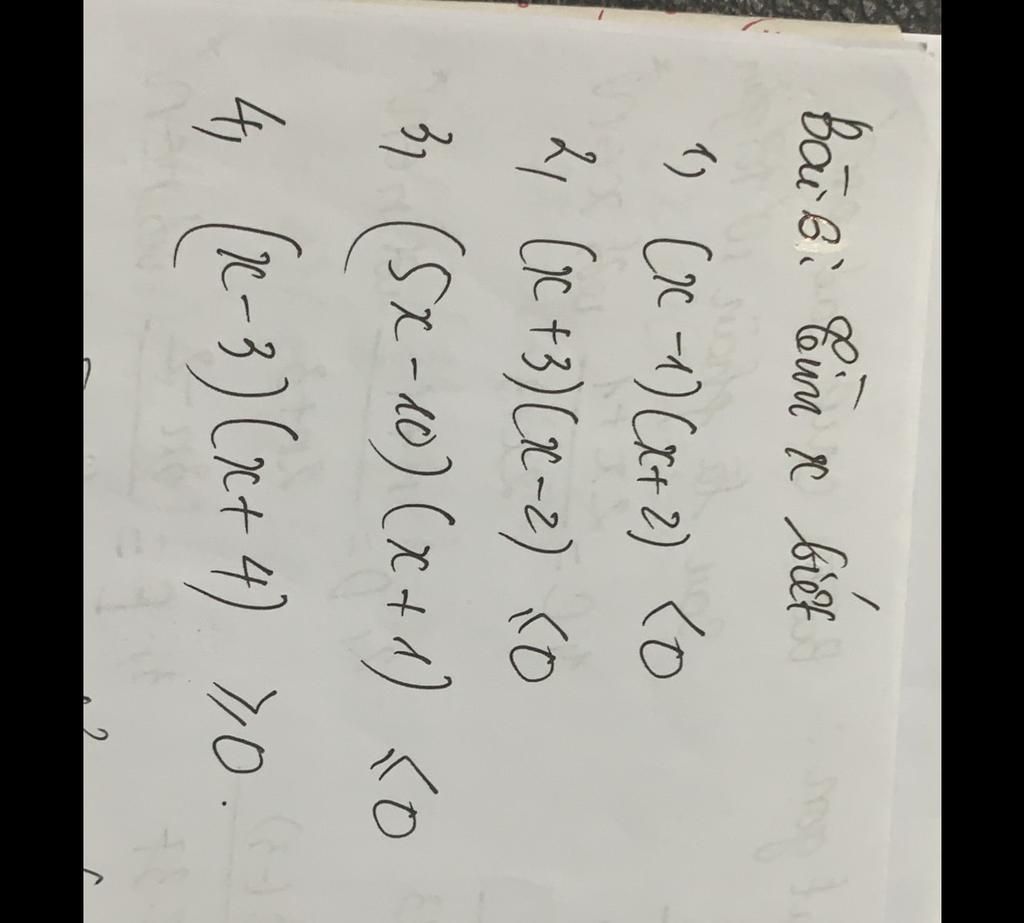 Bài 6: Tìm x biết
1, (x - 1)(x + 2) < 0
2, (x + 3)(x - 2) ≤ 0
3, (5x - 10)(x + 1) ≤ 0
4, (x - 3)(x + 4) ≥ 0.